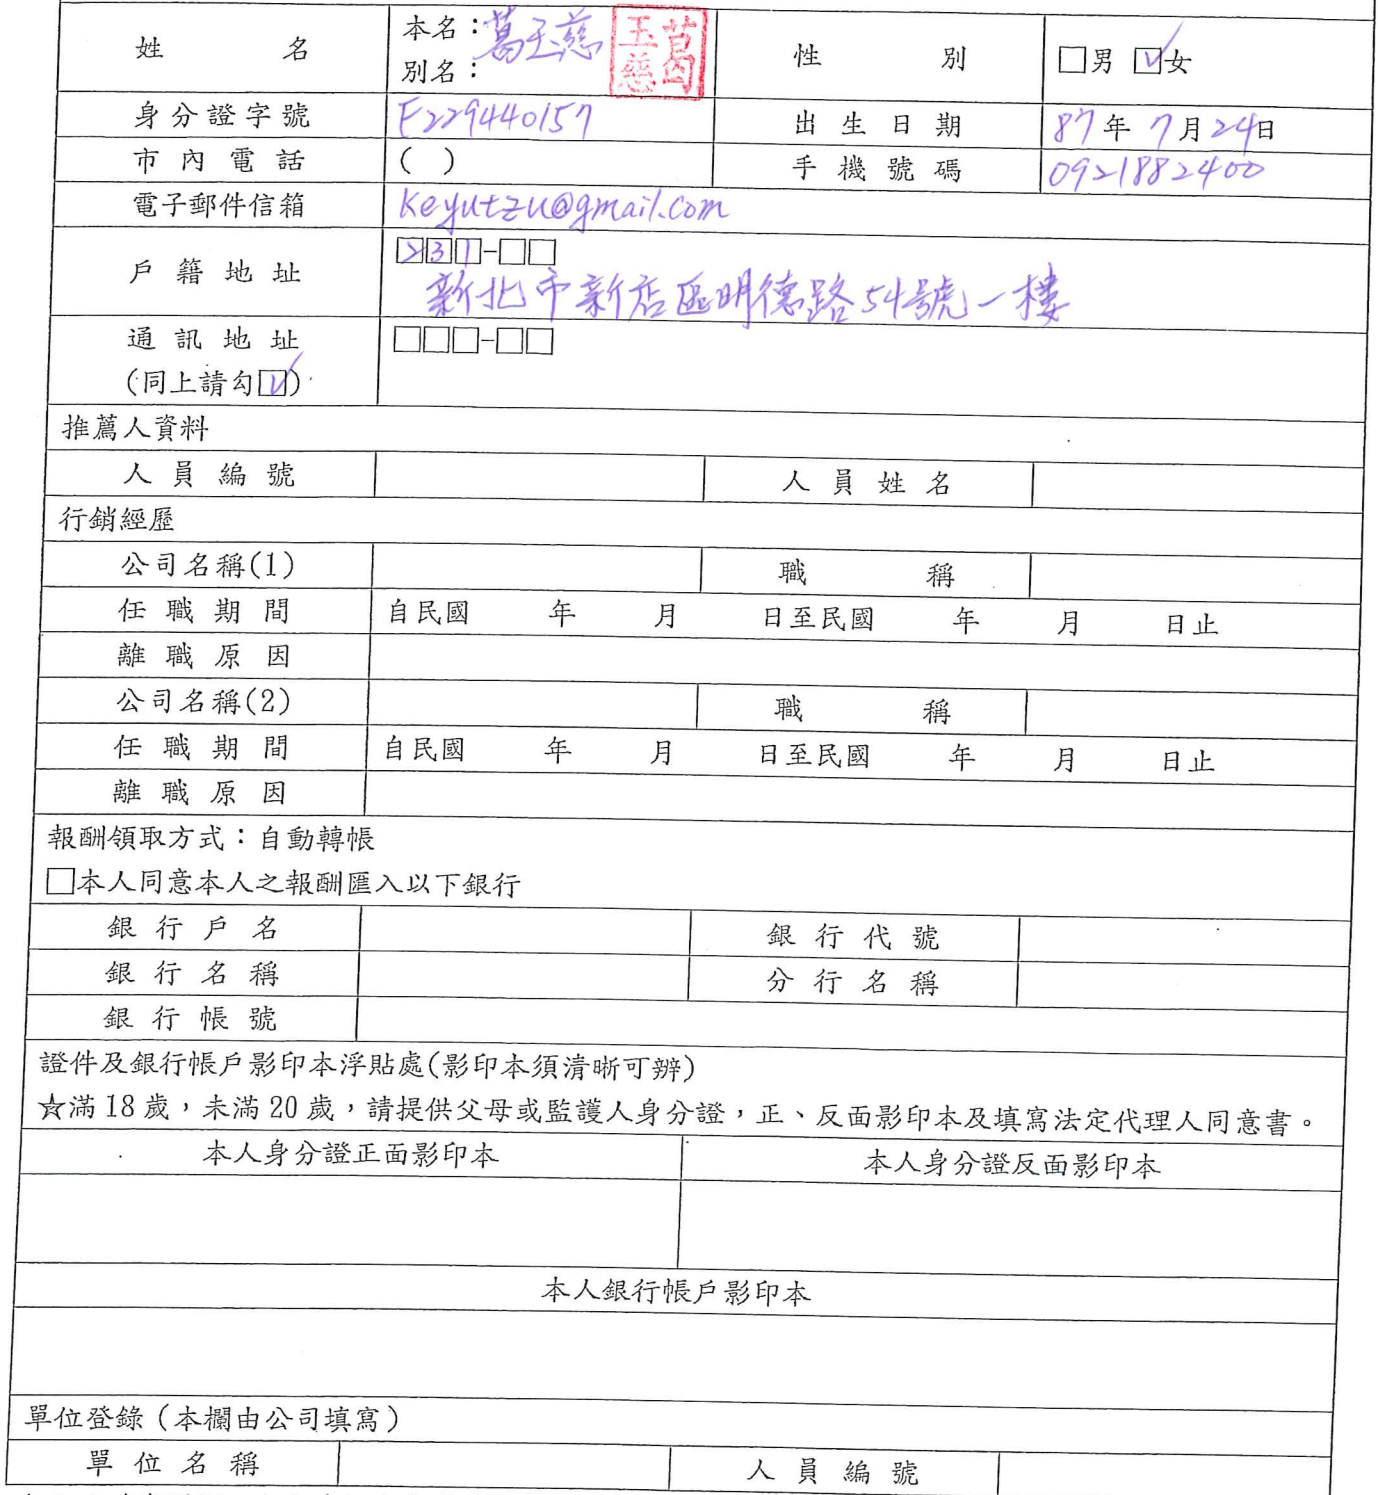 姓名 本名：葛玉慈 葛玉慈 性別 □男 ☑女
別名：
身分證字號 F229440157 出生日期 87年7月24日
市內電話 ( ) 手機號碼 0921882400
電子郵件信箱 keyutzu@gmail.com
戶籍地址 231-□□
新北市新店區明德路54號一樓
通訊地址 □□□-□□
(同上請勾☑)
推薦人資料
人員編號 人員姓名
行銷經歷
公司名稱(1) 職稱
任職期間 自民國 年 月 日至民國 年 月 日止
離職原因
公司名稱(2) 職稱
任職期間 自民國 年 月 日至民國 年 月 日止
離職原因
報酬領取方式：自動轉帳
□本人同意本人之報酬匯入以下銀行
銀行戶名 銀行代號
銀行名稱 分行名稱
銀行帳號
證件及銀行帳戶影印本浮貼處(影印本須清晰可辨)
☆滿18歲，未滿20歲，請提供父母或監護人身分證，正、反面影印本及填寫法定代理人同意書。
本人身分證正面影印本 本人身分證反面影印本
本人銀行帳戶影印本
單位登錄（本欄由公司填寫）
單位名稱 人員編號